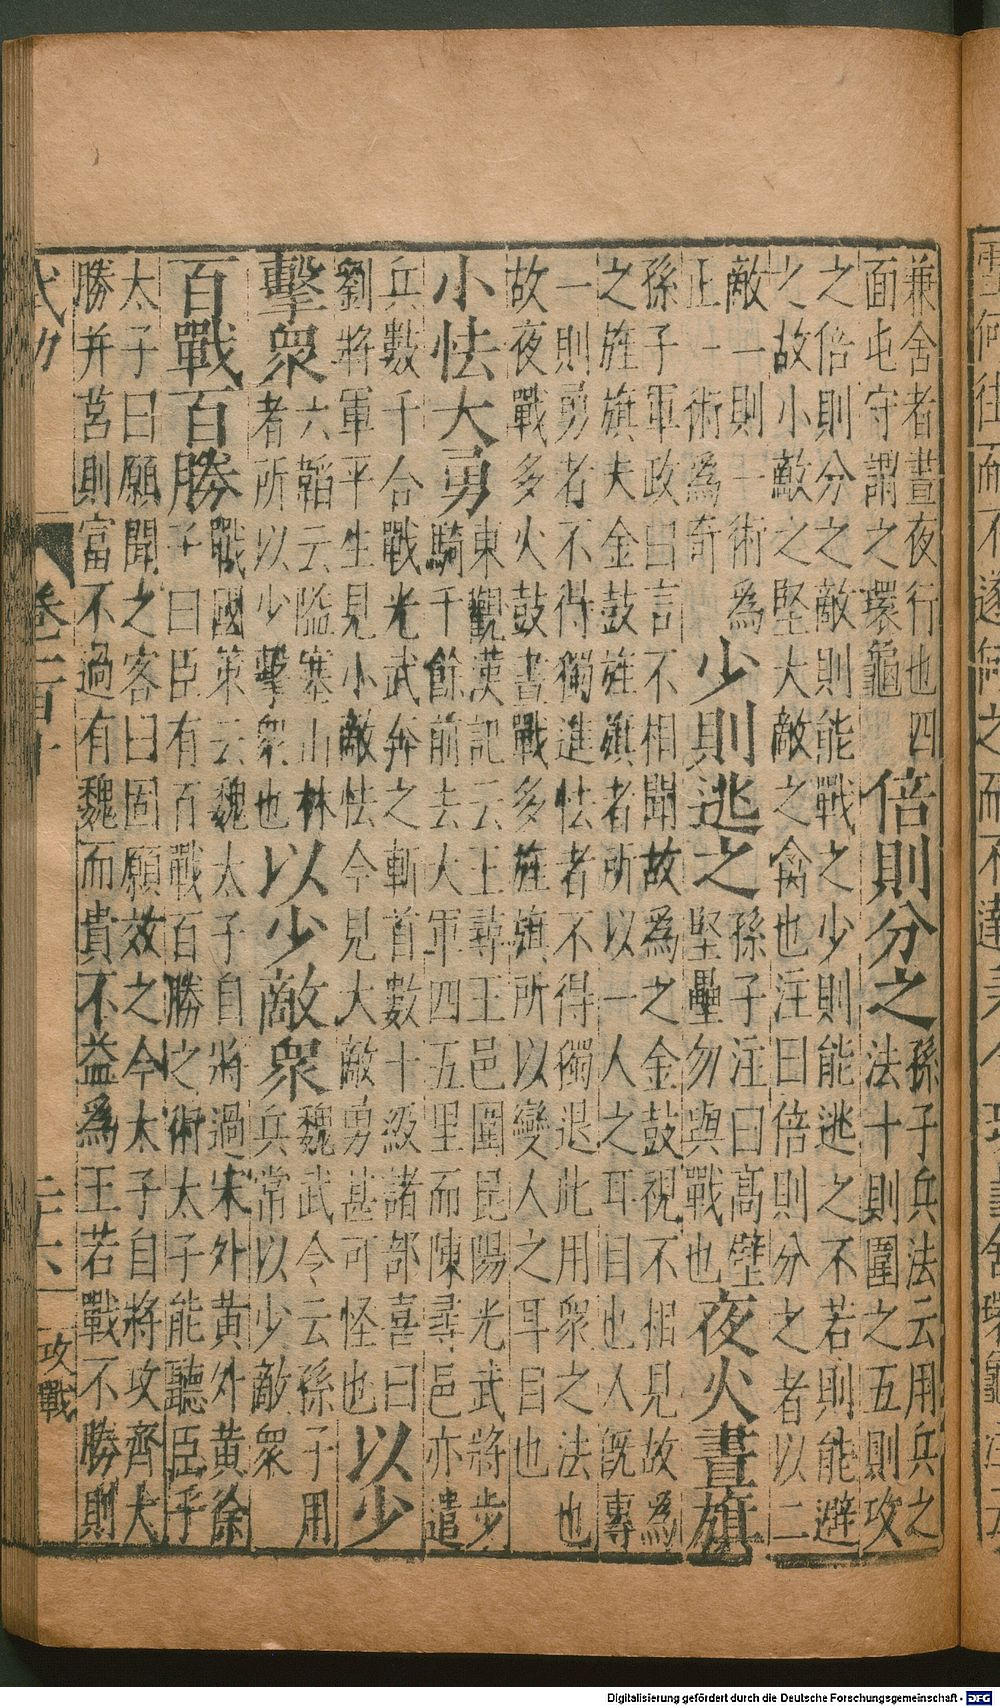 兼舍者晝夜行也四
面屯守謂之環龜
倍則分之
孫子兵法云用兵之
法十則圍之五則攻
之倍則分之敵則能戰之少則能逃之不若則能避
之故小敵之堅大敵之禽也注曰倍則分之者以二
敵一則一術爲
正一術爲奇
少則逃之
孫子注曰高壁
堅壘勿與戰也
夜火晝旗
孫子軍政曰言不相聞故爲之金鼓視不相見故爲
之旌旗夫金鼓旌旗者所以一人之耳目也人旣專
一則勇者不得獨進怯者不得獨退此用衆之法也
故夜戰多火鼓晝戰多旌旗所以變人之耳目也
小怯大勇
東觀漢記云王尋王邑圍昆陽光武將步
騎千餘前去大軍四五里而陳尋邑亦遣
兵數千合戰光武奔之斬首數十級諸部喜曰
劉將軍平生見小敵怯今見大敵勇甚可怪也
以少
擊衆
六韜云隘塞山林
者所以少擊衆也
以少敵衆
魏武令云孫子用
兵常以少敵衆
百戰百勝
戰國策云魏太子自將過宋外黃外黃徐
子曰臣有百戰百勝之術太子能聽臣乎
太子曰願聞之客曰固願效之今太子自將攻齊大
勝并莒則富不過有魏而貴不益爲王若戰不勝則
武功
二十六
攻戰
Digitalisierung gefördert durch die Deutsche Forschungsgemeinschaft - DFG